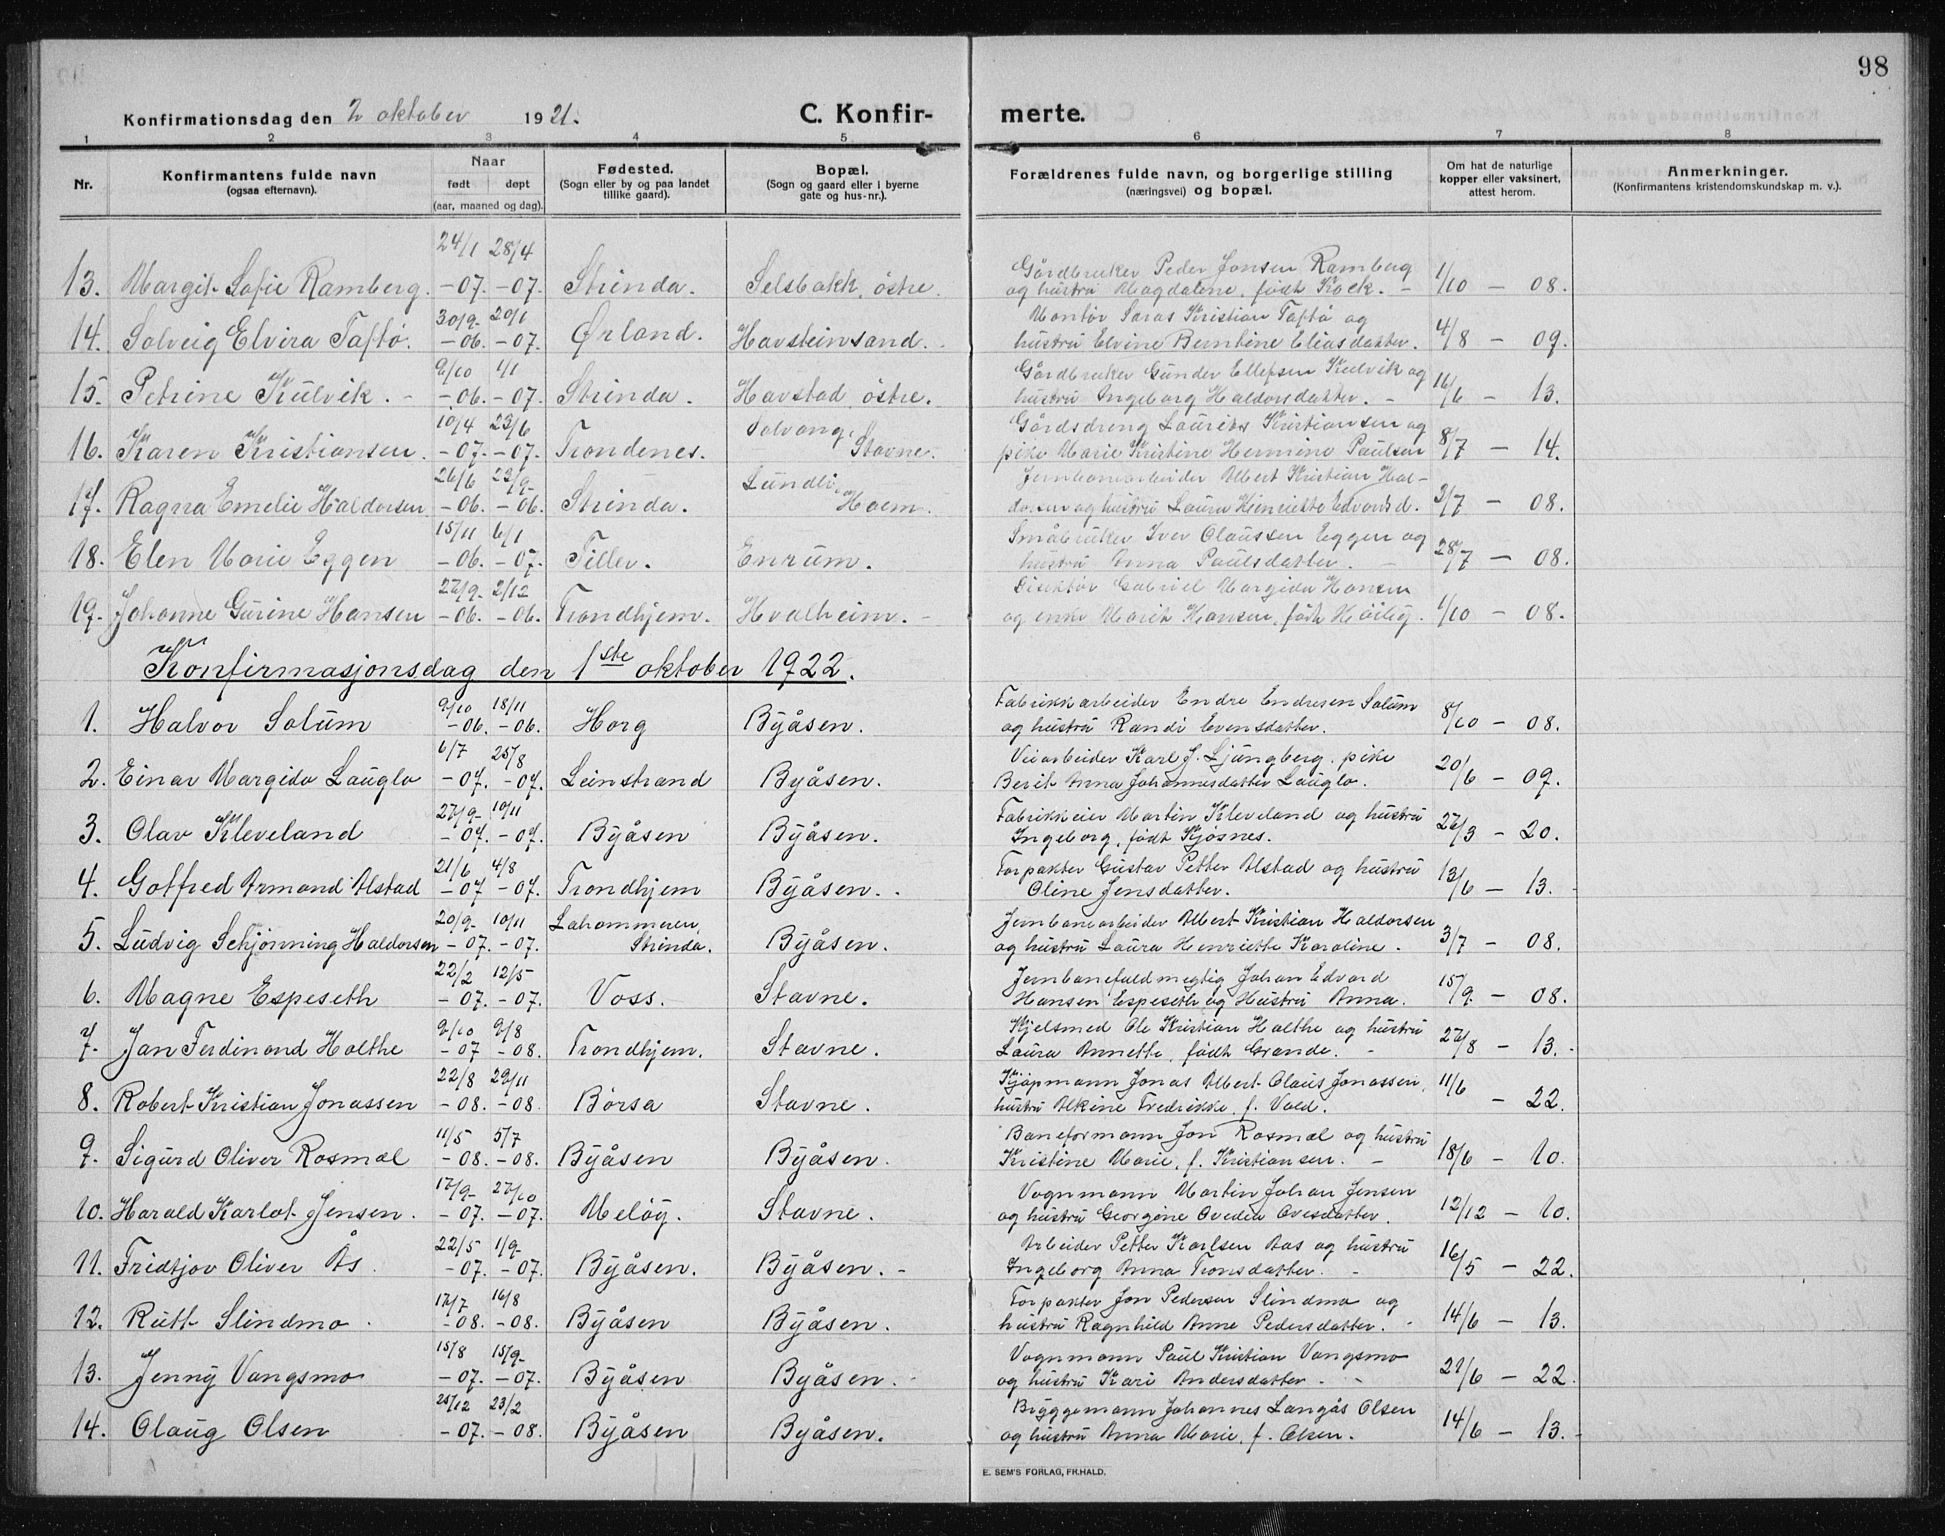 98
Konfirmationsdag den 2 oktober 1921.
C. Konfir-
merte.
1 2 3 4 5 6 7 8
Nr.
Konfirmantens fulde navn
(ogsaa efternavn).
Naar
født døpt
(aar, maaned og dag).
Fødested.
(Sogn eller by og paa landet
tillike gaard).
Bopæl.
(Sogn og gaard eller i byerne
gate og hus-nr.).
Forældrenes fulde navn, og borgerlige stilling
(næringsvei) og bopæl.
Om hat de naturlige
kopper eller vaksinert,
attest herom.
Anmerkninger.
(Konfirmantens kristendomskundskap m. v.).
24/1 28/4 Gårdbruker Peder Jonsen Ramberg
13. Margit Sofie Ramberg. -07. -07. Strinda. Selsbakk, østre. og hustru Magdalene, født Kock. - 1/10 - 08.
30/9- 20/1 Montør Saras Kristian Taftø og
14. Solveig Elvira Taftø. -06. -07. Ørland. Havsteinsand. hustru Elvine Berntine Eliasdatter. 4/8 - 09.
9/10 4/1 Gårdbruker Gunder Ellefsen Kulvik og
15. Petrine Kulvik. - -06. -07. Strinda. Havstad, østre. hustru Ingeborg Haldorsdatter. - 16/6 - 13.
10/4 23/6 Solvang, Gårdsdreng Laurits Kristiansen og
16. Karen Kristiansen. -07. -07. Trondenes. Stavne. pike Marie Kristine Hermine Paulsen 8/7 - 14.
26/6 23/9- Lundli, Jernbanearbeider Albert Kristian Hal-
17. Ragna Emelie Haldorsen -06. -06. Strinda. Hoem. dorsen og hustru Laura Henriette Edvardsd. 3/7 - 08.
15/11 6/1 Småbruker Iver Claussen Eggen og
18. Elen Marie Eggen -06. -07. Tiller. Enrum. hustru Anna Paulsdatter. - 28/7 - 08.
27/9- 2/12 Disektør Gabriel Margido Hansen
19. Johanne Gurine Hansen -06. -06. Trondhjem. Hvalheim. - og enke Marit Hansen, født Høilig. 1/10 - 08.
Konfirmasjonsdag den 1ste oktober 1922.
9/10 18/11 Fabrikkarbeider Endre Endresen Solum
1. Halvor Solum -06. -06. Horg Byåsen. og hustru Randi Evensdatter. 8/10 - 08.
6/7 25/8 Veiarbeider Karl J. Ljungberg. pike
2. Einar Margido Lauglo -07. -07. Leinstrand Byåsen. Berit Anna Johannesdatter Lauglo. 20/6 - 09.
27/9- 10/11 Fabrikkeier Martin Kleveland og hustru
3. Olav Kleveland -07. -07. Byåsen Byåsen. Ingeborg, født Kjøsnes. 22/3 - 20.
21/6 4/8 Forpakter Gustav Petter Alstad og hustru
4. Gotfred Armand Alstad -07 -07. Trondhjem Byåsen. . Oline Jensdatter. 13/6 - 13.
20/9- 10/11 Lahammeren, Jernbanearbeider Albert Kristian Haldorsen
5. Ludvig Schjønning Haldorsen -07. -07. Strinda. Byåsen. og hustru Laura Henriette Karoline. 3/7 - 08.
22/2 12/5 Jernbanefuldmegtig Johan Edvard
6. Magne Espeseth -07. -07. Voss. Stavne. Hansen Espeseth og Hustru Anna. 15/9. - 08.
9/10 9/8 Kjelsmed Ole Kristian Holthe og hustru
7. Jan Ferdinand Holthe -07 -08. Trondhjem. Stavne. Laura Annette, født Grande. - 27/8 - 13.
22/8 29/11 Kjøpmann Jonas Albert Claus Jonassen,
8. Robert Kristian Jonassen -08. -08. Børsa Stavne. hustru Alkine Fredrikke, f. Vold. 11/6 - 22.
11/5 5/7 Baneformann Jon Rosmæl og hustru
9. Sigurd Oliver Rosmæl -08. -08. Byåsen Byåsen. Kristine Marie, f. Kristiansen. - 18/6 - 10.
17/9- 27/10 Vognmann Martin Johan Jensen
10. Harald Karlot Jensen. -07. -07. Meløy. Stavne. og hustru Georgine Ovedia Ovesdatter. 12/12 - 10.
22/5 1/9- Arbeider Petter Karlsen Aas og hustru
11. Fridtjov Oliver Ås. -07. -07. Byåsen. Byåsen. - Ingeborg Anna Tronsdatter. - 16/5 - 22.
17/7 16/8 Forpakter Jon Pedersen Slindmo og
12. Rutt Slindmo. -08. -08. Byåsen Byåsen. hustru Ragnhild Anne Pedersdatter. - 14/6 - 13.
15/8 15/9- Vognmann Paul Kristian Vangsmo
13. Jenny Vangsmo -07. -07. Byåsen Byåsen. og hustru Kari Andersdatter. - 21/6 - 22.
25/12 23/2 Byggemann Johannes Langås Olsen
14. Olaug Olsen -07. -08. Byåsen Byåsen. og hustru Anna Marie, f. Olsen. 14/6 - 13.
E. SEM'S FORLAG, FR.HALD.